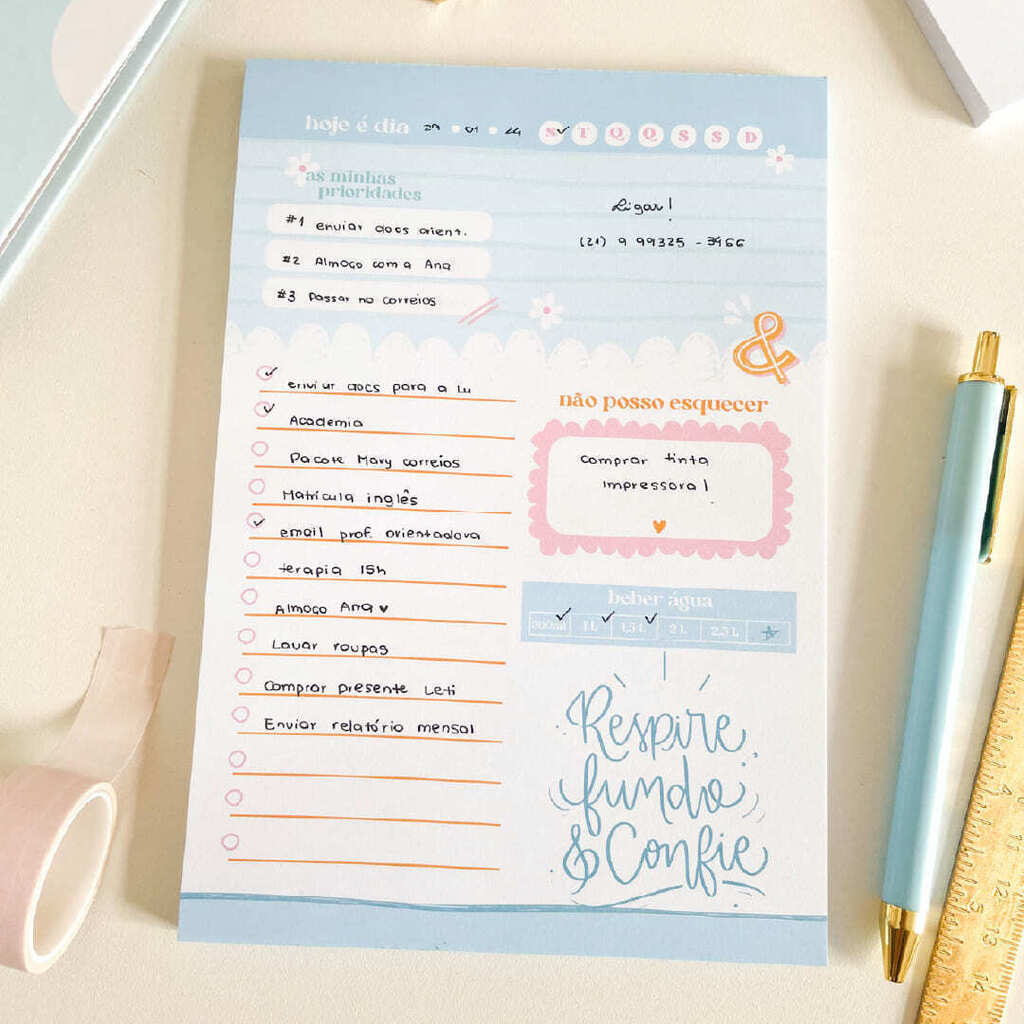 hoje é dia 29 01 24 S T Q Q S S D
as minhas
prioridades
#1 enviar docs orient.
#2 Almoço com a Ana
#3 Passar no correios
Ligar!
(21) 9 99325-3966
&
enviar docs para a Lu
Academia
Pacote Mary correios
Matrícula inglês
email prof. orientadora
terapia 15h
Almoço Ana ♥
Lavar roupas
Comprar presente Leti
Enviar relatório mensal
não posso esquecer
comprar tinta
impressora!
beber água
500ml 1L 1,5L 2L 2,5L
Respire
fundo
& Confie
4
12
13
14